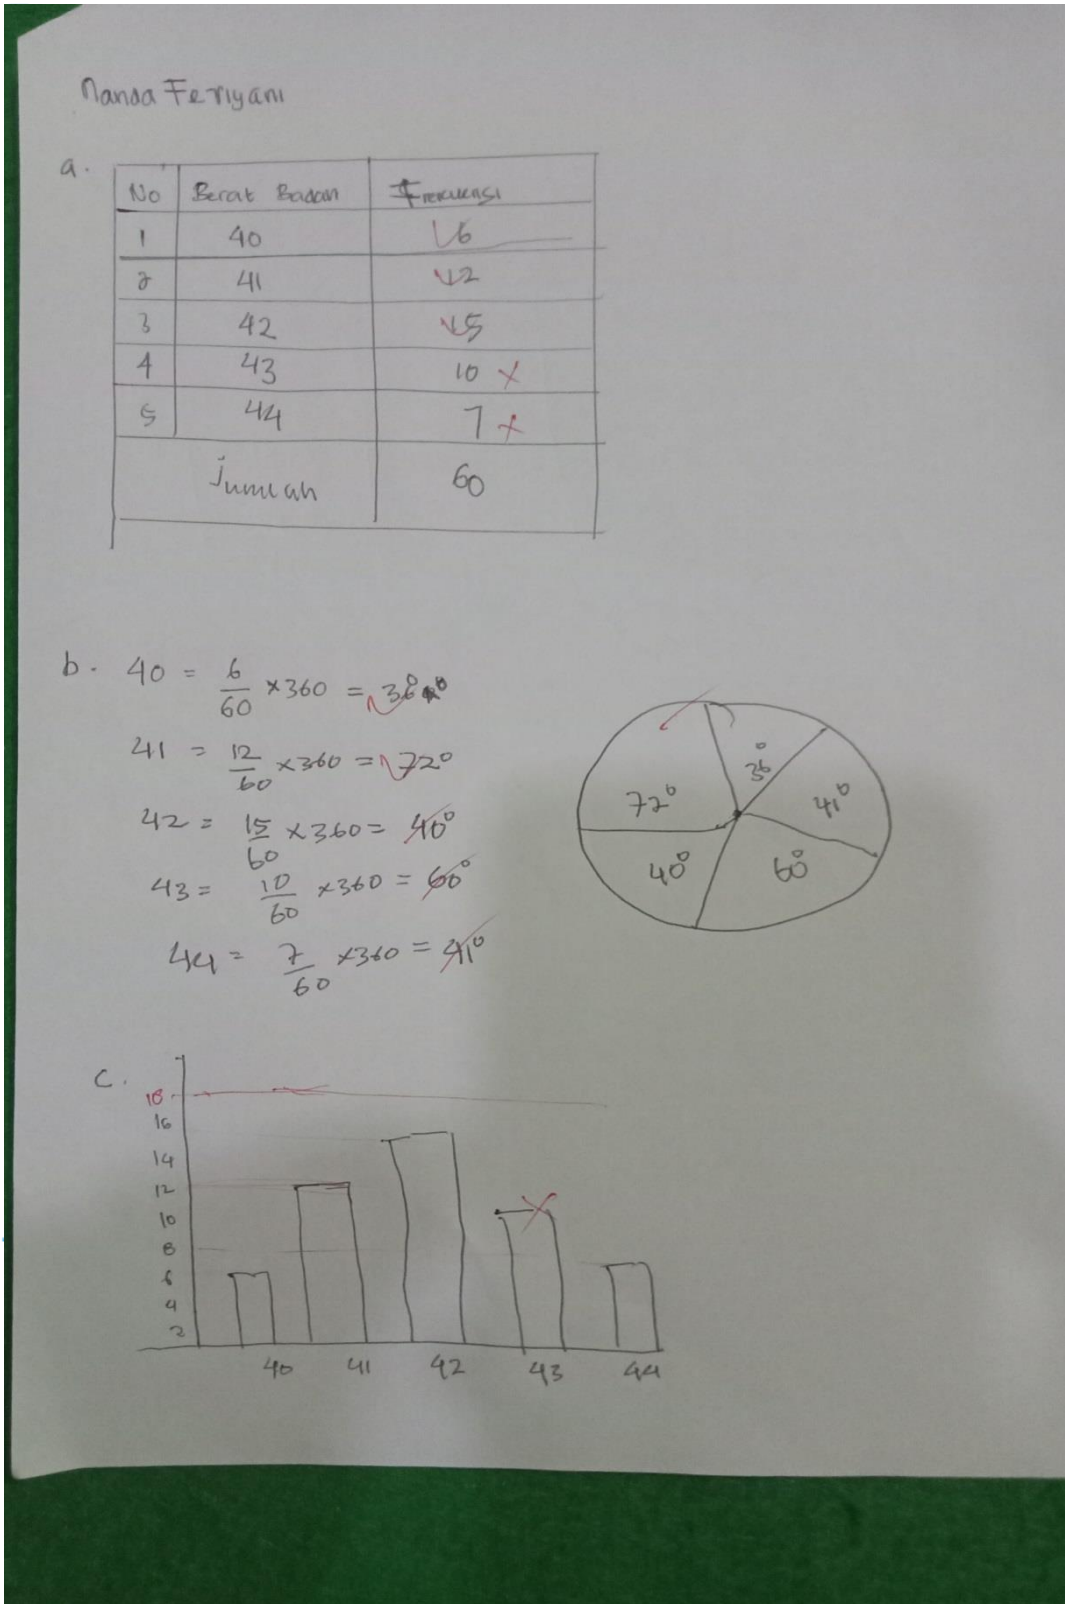 Nanda Feriyani
a.
No Berat Badan Frekuensi
1 40 6
2 41 12
3 42 15
4 43 10 ×
5 44 7 ×
Jumlah 60
b. 40 = 6/60 × 360 = 36°
41 = 12/60 × 360 = 72°
42 = 15/60 × 360 = 40°
43 = 10/60 × 360 = 60°
44 = 7/60 × 360 = 41°
36°
72° 41°
40° 60°
c.
18
16
14
12
10
8
6
4
2
40 41 42 43 44